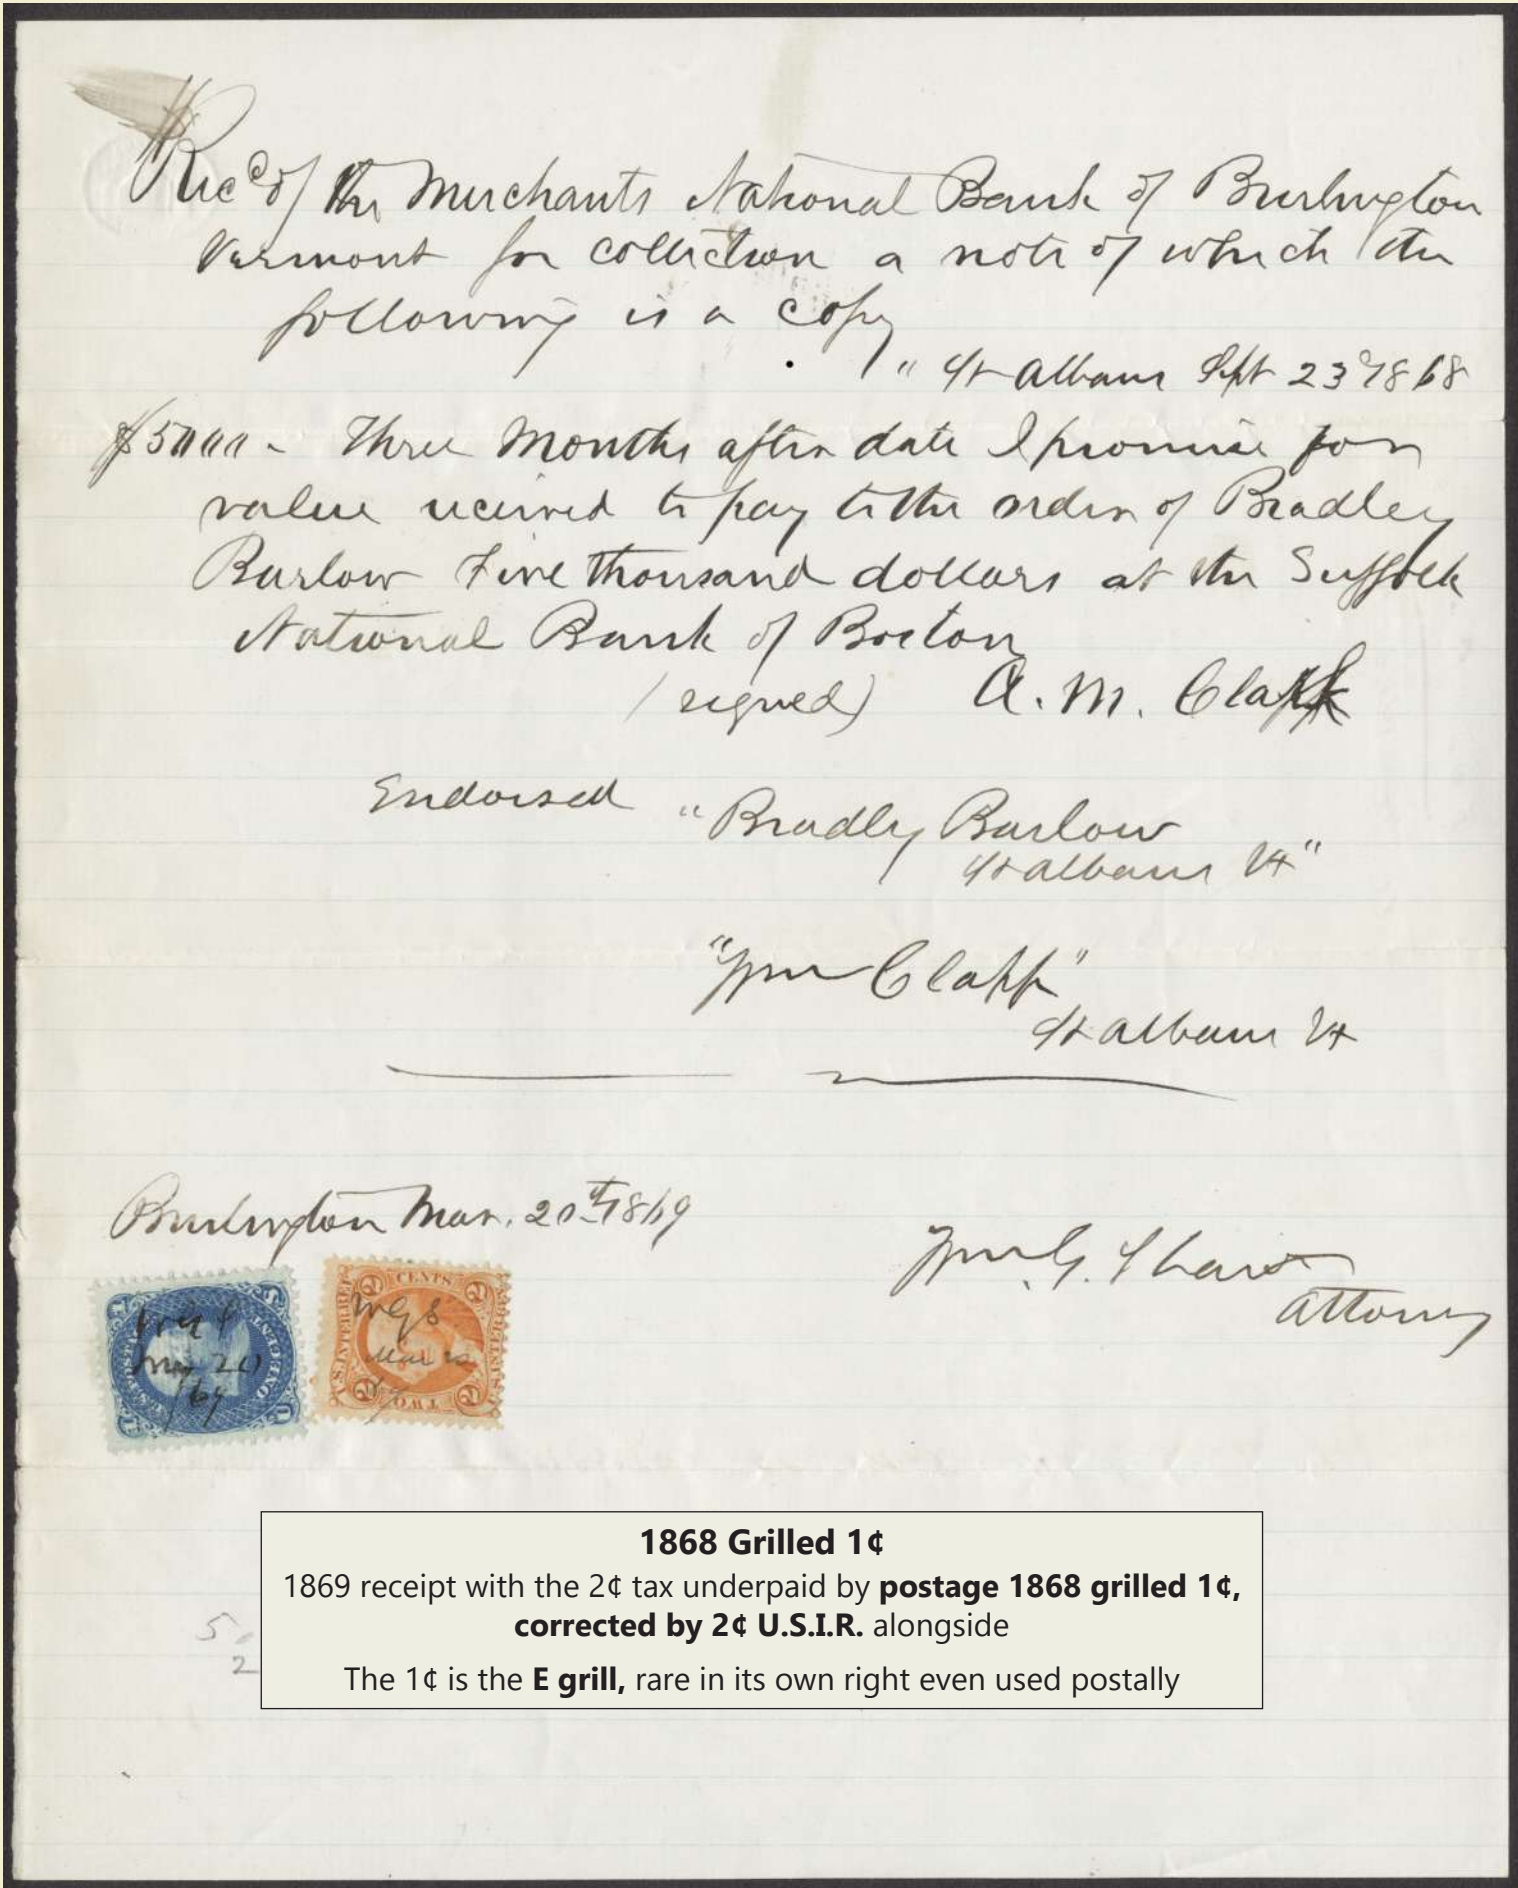 Recd of the Merchants National Bank of Burlington
Vermont for collection a note of which the
following is a copy
" St Albans Sept 23d 1868
$5000 - Three months after date I promise for
value received to pay to the order of Bradley
Barlow Five thousand dollars at the Suffolk
National Bank of Boston
(signed) A. M. Clapp
Endorsed "Bradley Barlow
St Albans Vt"
"Wm Clapp"
St Albans Vt
Burlington Mar. 20th 1869
Wm. G. Shaw
Attorney
WGS
Mar 20
/69
ONE CENT
2 CENTS 2
U.S. INTER. REV.
WGS
Mar 20
2 TWO 2
1868 Grilled 1¢
1869 receipt with the 2¢ tax underpaid by postage 1868 grilled 1¢,
corrected by 2¢ U.S.I.R. alongside
The 1¢ is the E grill, rare in its own right even used postally
5
2